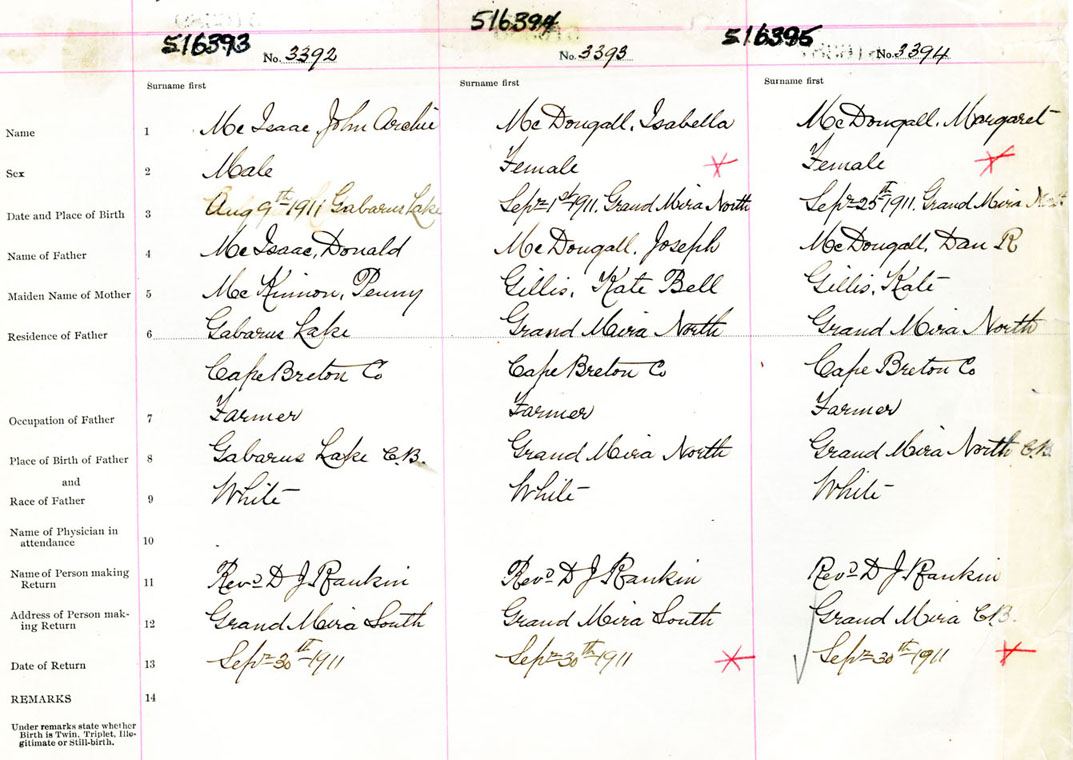 516393 516394 516395
No. 3392 No. 3393 No. 3394
Surname first Surname first Surname first
Name 1 Mc Isaac, John Archie McDougall, Isabella McDougall, Margaret
Sex 2 Male Female Female
Date and Place of Birth 3 Aug 9th 1911 Gabarus Lake Sept 1st 1911, Grand Mira North Sept 25th 1911, Grand Mira North
Name of Father 4 Mc Isaac, Donald McDougall, Joseph McDougall, Dan R
Maiden Name of Mother 5 Mc Kinnon, Penny Gillis, Kate Bell Gillis, Kate
Residence of Father 6 Gabarus Lake Grand Mira North Grand Mira North
Cape Breton Co Cape Breton Co Cape Breton Co
Occupation of Father 7 Farmer Farmer Farmer
Place of Birth of Father 8 Gabarus Lake C.B. Grand Mira North Grand Mira North C.B.
and
Race of Father 9 White White White
Name of Physician in
attendance 10
Name of Person making
Return 11 Revd D J Rankin Revd D J Rankin Revd D J Rankin
Address of Person mak-
ing Return 12 Grand Mira South Grand Mira South Grand Mira C.B.
Date of Return 13 Sept 30th 1911 Sept 30th 1911 Sept 30th 1911
REMARKS 14
Under remarks state whether
Birth is Twin, Triplet, Ille-
gitimate or Still-birth.